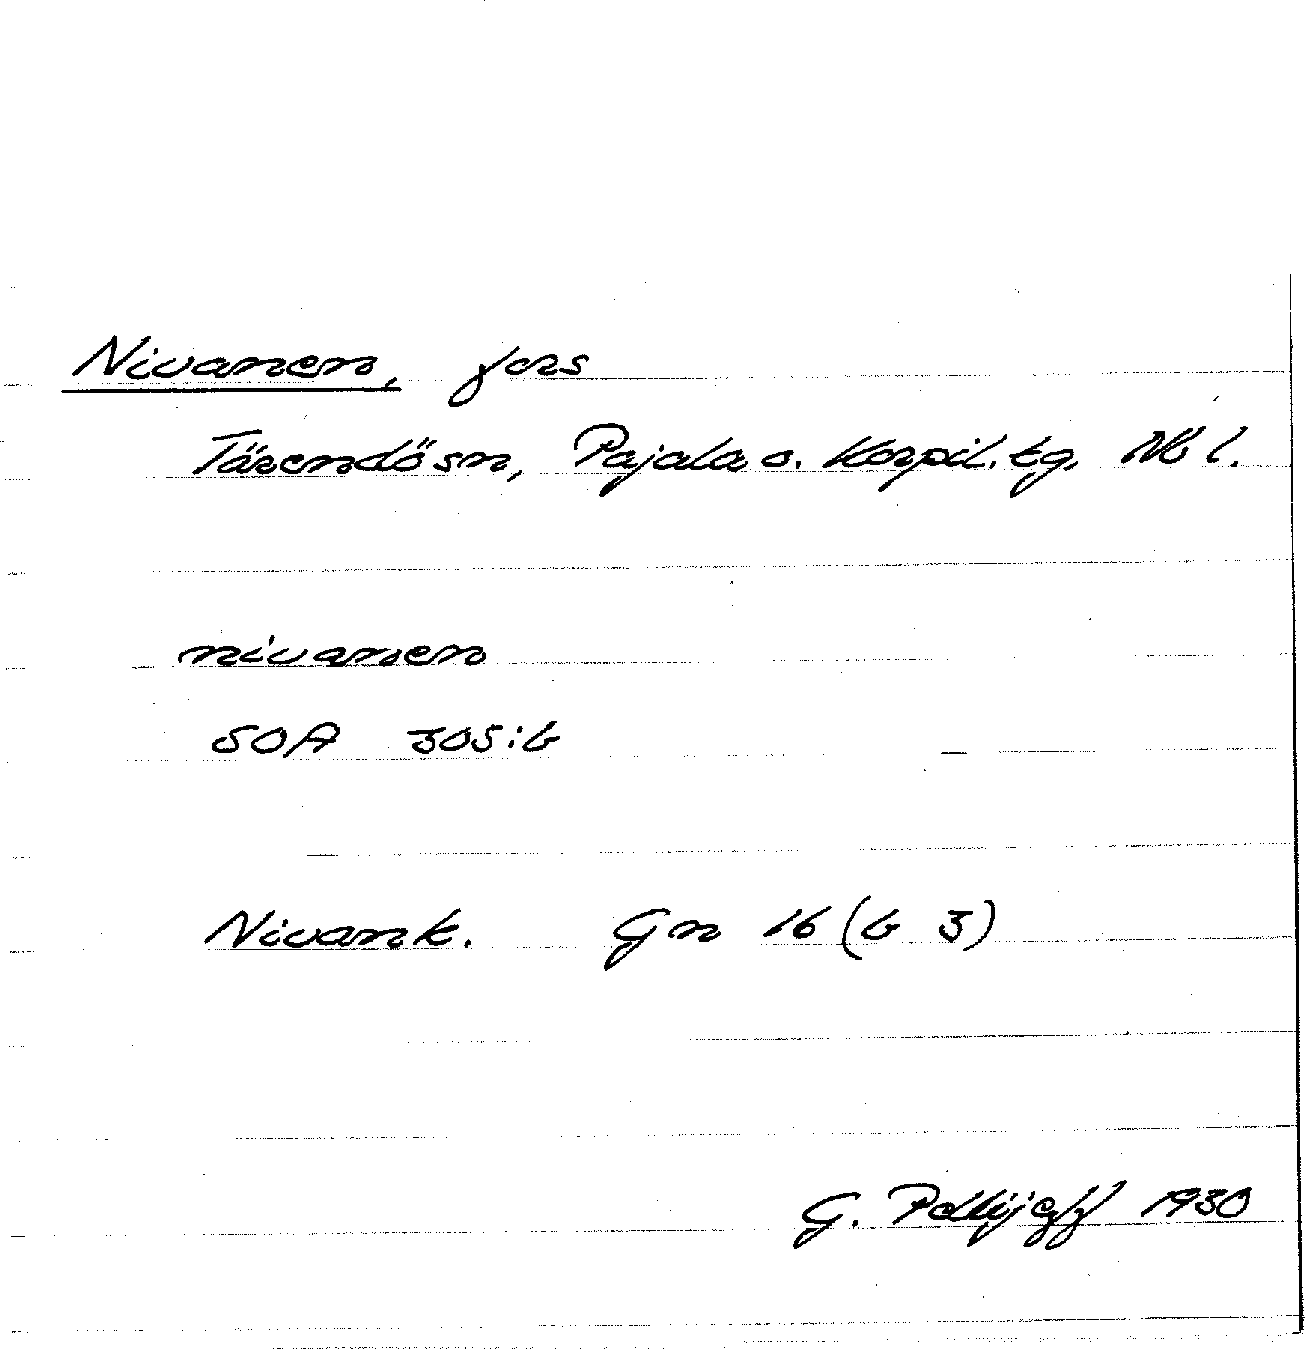 Nivanen, fors
Tärendö sn, Pajala o. Korpil. tg. Nb l.
nivanen
SOA 305:6
Nivank. Gn 16 (6 3)
G. Pellijeff 1930